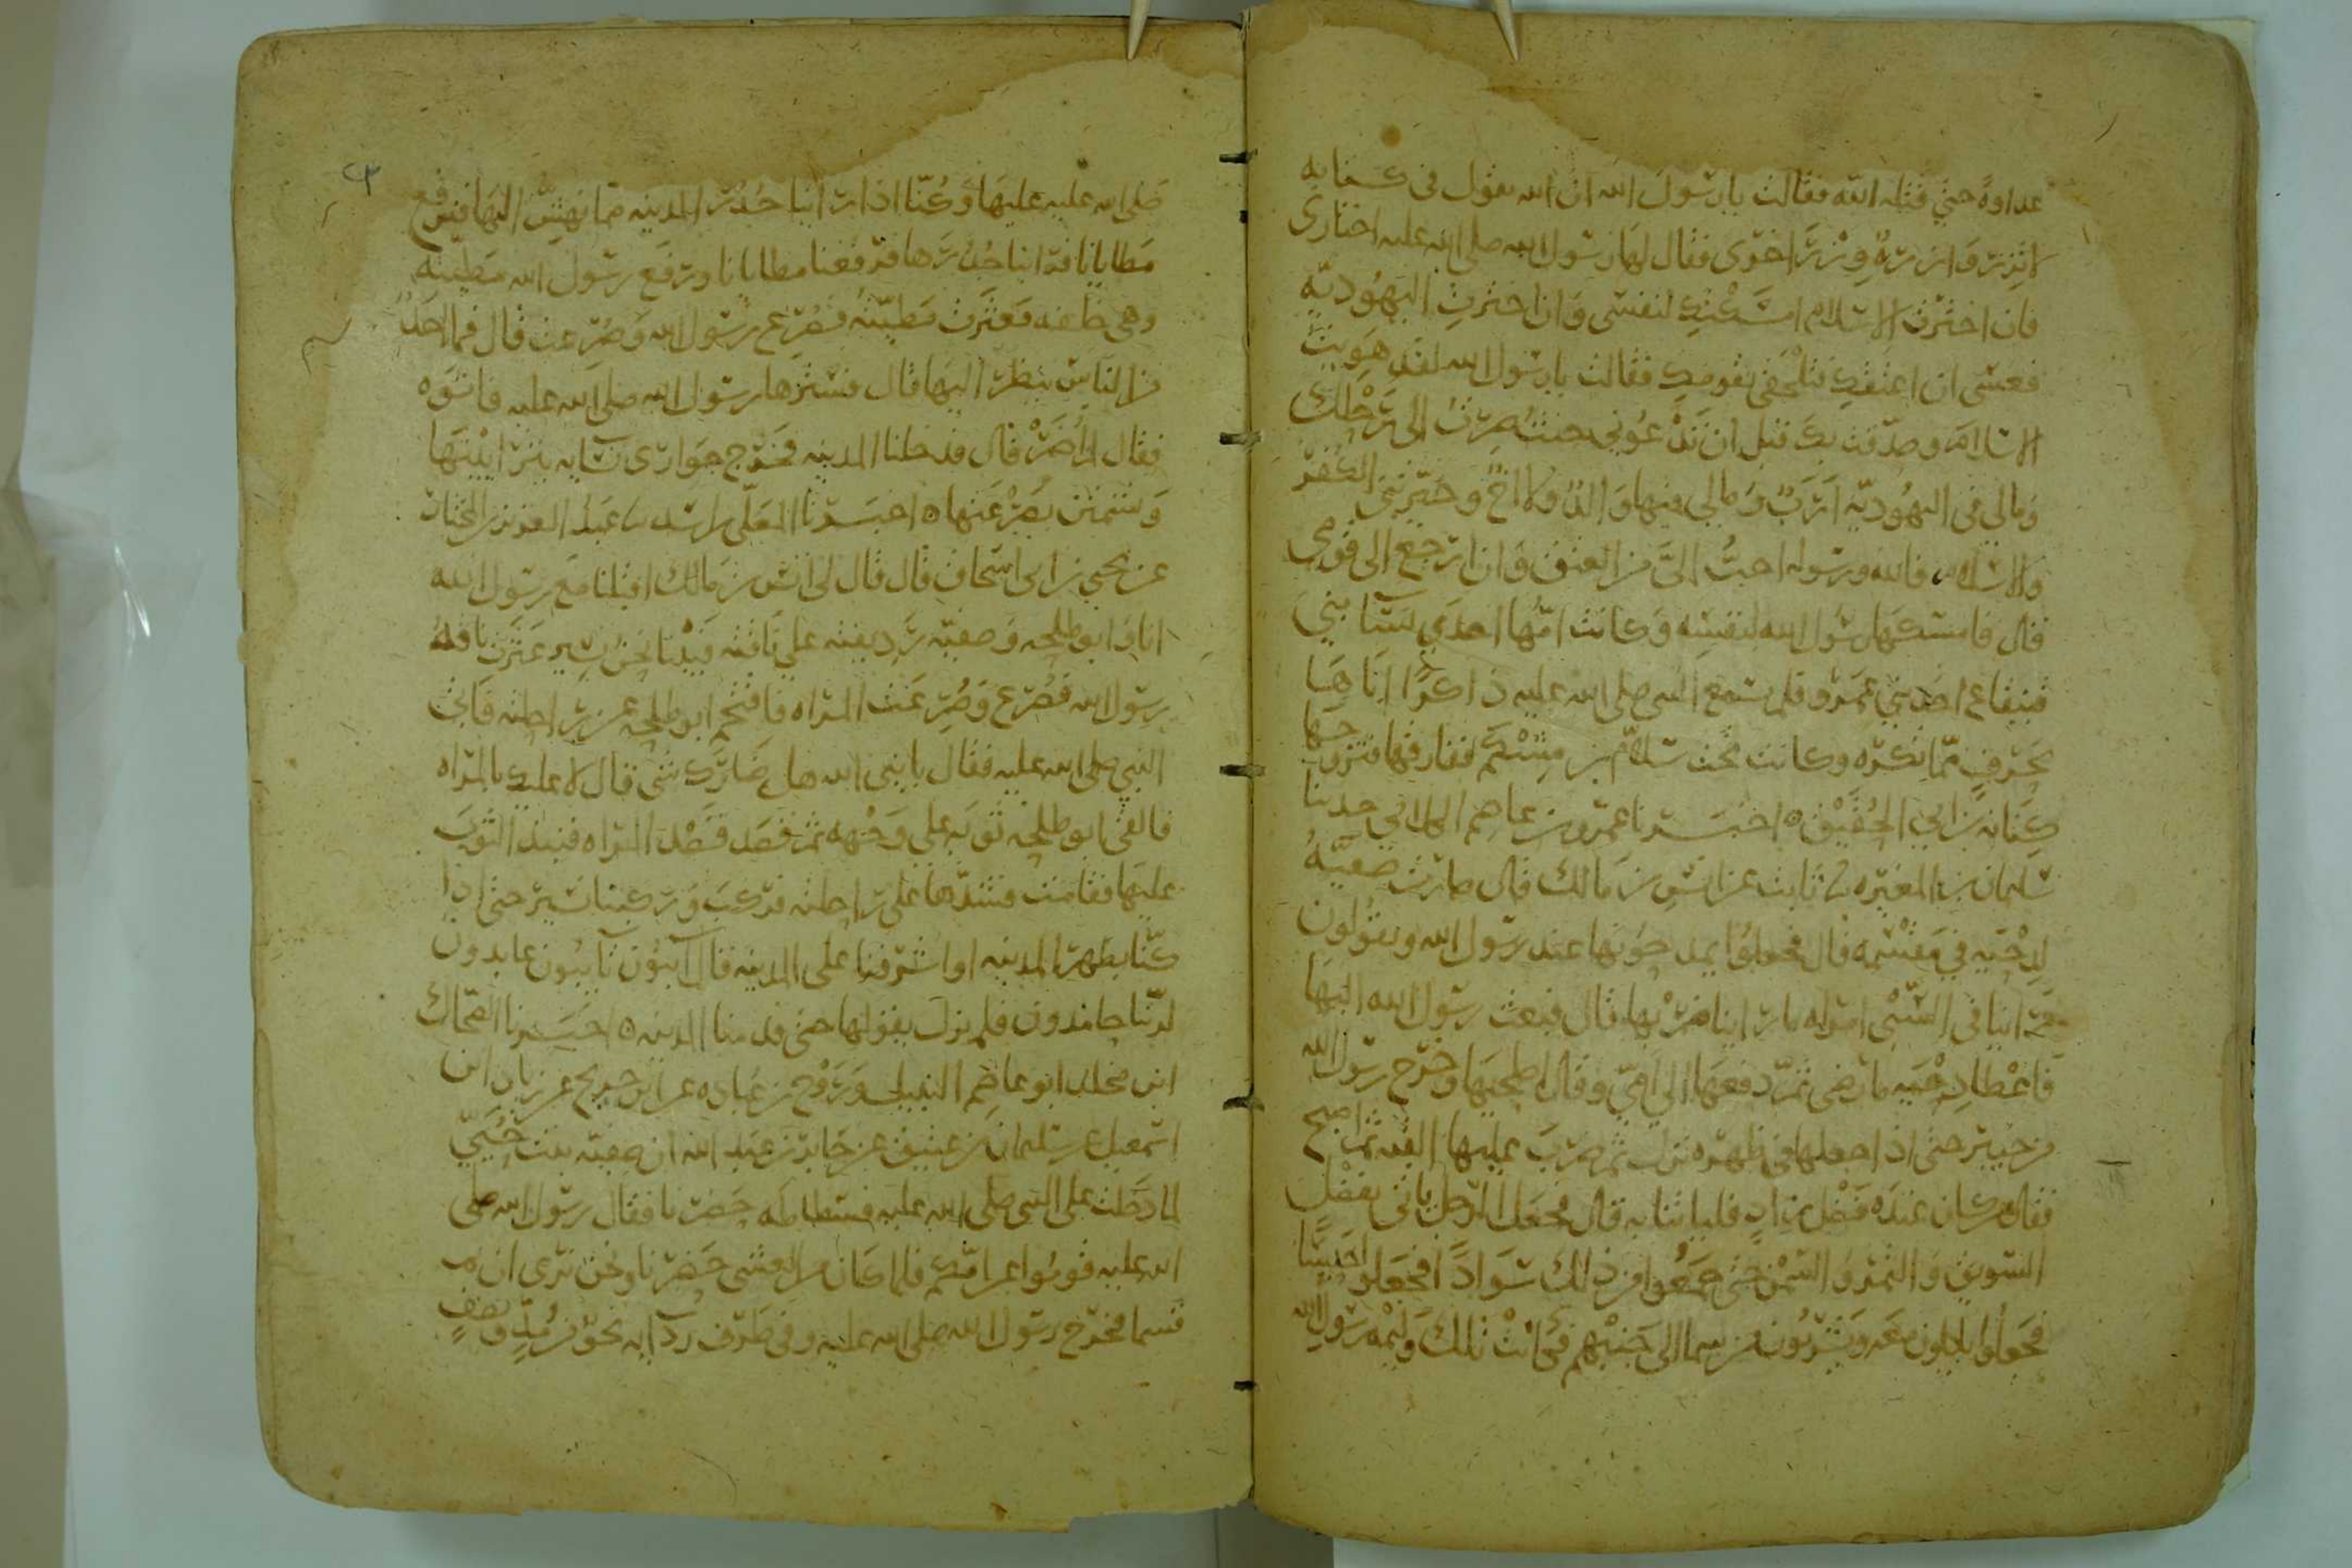 عداوة حتى قتله الله فقالت يا رسول الله ان الله يقول فى كتابه
لا تزر وازرة وزر اخرى فقال لها رسول الله صلى الله عليه اختارى
فان اخترت الاسلام امسكتك لنفسى وان اخترت اليهودية
فعسى ان اعتقك فتلحقى بقومك فقالت يا رسول الله لقد هويت
الاسلام وصدقت بك قبل ان تدعونى حيث صرت الى رحلك
وما لى فى اليهودية ارب وما لى فيها والد ولا اخ وخيرتنى الكفر
والاسلام فالله ورسوله احب الى من العتق وان ارجع الى قومى
قال فامسكها رسول الله لنفسه وكانت امها احدى نسا بنى
قينقاع احد بنى عمرو فلم يسمع النبى صلى الله عليه ذاكرا اباها
بحرف مما تكره وكانت تحت سلام بن مشكم ففارقها فتزوجها
كنانه بن ابى الحقيق ه اخبرنا عمرو بن عاصم الكلابى حدثنا
سليمان بن المغيره نا ثابت عن انس بن مالك قال صارت صفية
لدحيه فى مقسمه قال فجعلوا يمدحونها عند رسول الله ويقولون
راينا فى السبى امراه ما راينا ضربها قال فبعث رسول الله اليها
فاعطا دحيه ما رضى ثم دفعها الى امى وقال اصلحيها وخرج رسول الله
من خيبر حتى اذا جعلها فى ظهره نزل ثم ضرب عليها القبه ثم اصبح
فقال من كان عنده فضل زاد فلياتنا به قال فجعل الرجل ياتى بفضل
السويق والتمر والسمن حتى جمعوا من ذلك سوادا فجعلوا حيسا
فجعلوا ياكلون معه ويشربون من سما الى جنبهم فكانت تلك وليمة رسول الله
صلى الله عليه عليها وكنا اذا راينا جدر المدينه مما نهش اليها فنرفع
مطايانا فراينا جدرها فرفعنا مطايانا ورفع رسول الله مطيته
وهى خلفه فعثرت مطيته فصرع رسول الله وصرعت قال فما احد
من الناس ينظر اليها قال فسترها رسول الله صلى الله عليه فاتوه
فقال لم اضر قال فدخلنا المدينه فخرج جوارى نسايه يتراينها
ويشمتن بصرعتها ه اخبرنا المعلى بن اسد نا عبد العزيز بن المختار
عن يحيى بن ابى اسحاق قال قال لى انس بن مالك اقبلنا مع رسول الله
انا وابو طلحه وصفيه رديفته على ناقته فبينا نحن نسير عثرت ناقة
رسول الله فصرع وصرعت المراه فاقتحم ابو طلحه عن راحلته فاتى
النبى صلى الله عليه فقال يا نبى الله هل ضارك شى قال لا عليك بالمراه
فالقى ابو طلحه ثوبه على وجهه ثم قصد قصد المراه فنبذ الثوب
عليها فقامت فشدها على راحلته فركب وركبنا نسير حتى اذا
كنا بظهر المدينه او اشرفنا على المدينه قال آئبون تايبون عابدون
لربنا حامدون فلم يزل يقولها حتى قدمنا المدينه ه اخبرنا الضحاك
ابن مخلد ابو عاصم النبيل وروح بن عباده عن ابن جريج عن زياد ابن
اسمعيل عن سليمان بن عتيق عن جابر بن عبد الله ان صفيه بنت حيى
لما دخلت على النبى صلى الله عليه فسطاطه حضرنا فقال رسول الله صلى
الله عليه قوموا عن امكم فلما كان من العشى حضرنا ونحن نرى ان ثم
قسما فخرج رسول الله صلى الله عليه وفى طرف ردايه نحو من مد ونصف